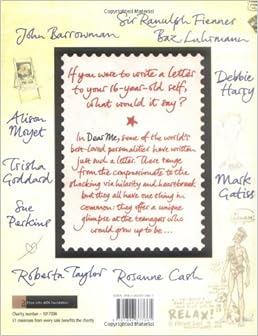 John Barrowman
Sir Ranulph Fiennes
Baz Luhrmann
If you were to write a letter
to your 16-year-old self,
what would it say?
Debbie Harry
Alison Moyet
In Dear Me, some of the world's
best-loved personalities have written
just such a letter. These range
from the compassionate to the
shocking via hilarity and heartbreak
but they all have one thing in
common: they offer a unique
glimpse at the teenagers who
would grow up to be...
Trisha Goddard
Sue Perkins
Mark Gatiss
Roberta Taylor
Rosanne Cash
RELAX!
Elton John AIDS Foundation
Charity number
£1 minimum from every sale benefits the charity